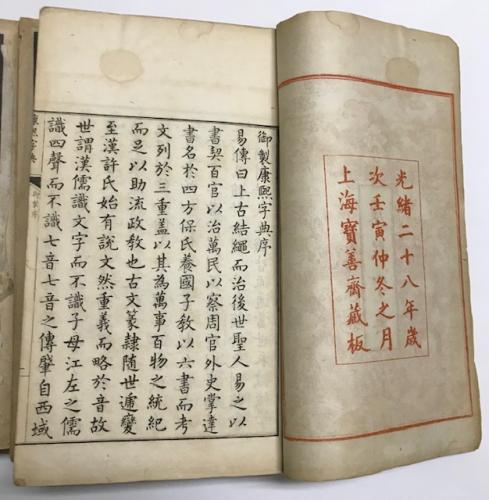 光緒二十八年歲
次壬寅仲冬之月
上海寶善齋藏板
御製康熙字典序
易傳曰上古結繩而治後世聖人易之以
書契百官以治萬民以察周官外史掌達
書名於四方保氏養國子教以六書而考
文列於三重蓋以其為萬事百物之統紀
而足以助流政教也古文篆隸隨世遞變
至漢許氏始有說文然重義而略於音故
世謂漢儒識文字而不識子母江左之儒
識四聲而不識七音七音之傳肇自西域
康熙字典
御製序